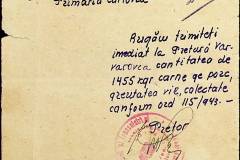 Primăria
Rugăm trimiteți
imediat la Pretura Var-
varovca cantitatea de
1455 kgr carne de porc,
greutatea vie, colectate
conform ord 115/943. -
Pretor